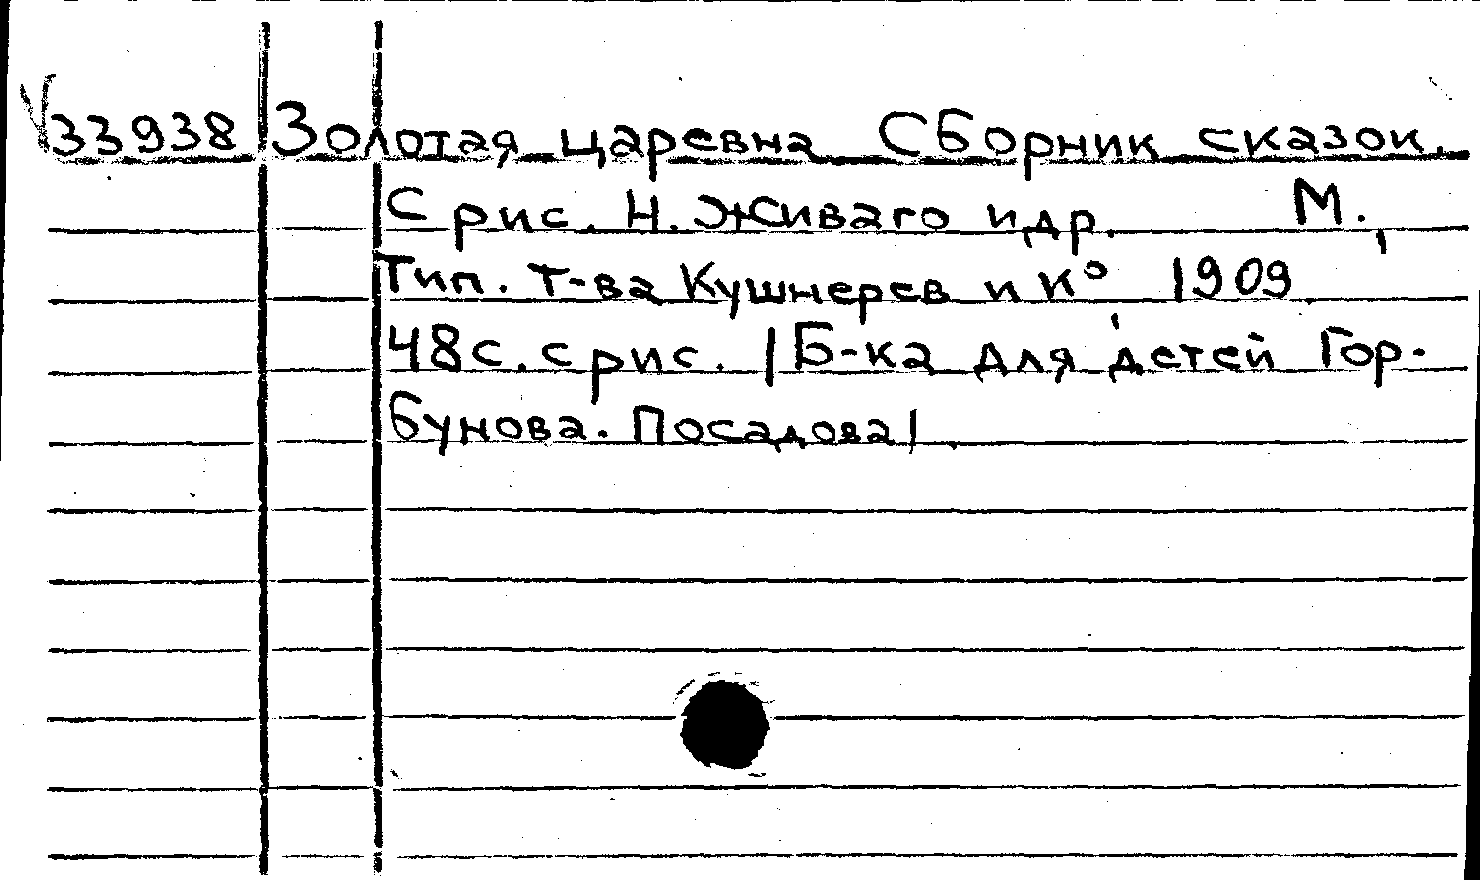 33938 Золотая царевна Сборник сказок.
С рис. Н. Живаго и др. М.,
Тип. т-ва Кушнерев и К° 1909.
48с. с рис. |Б-ка для детей Гор-
бунова. Посадова|.